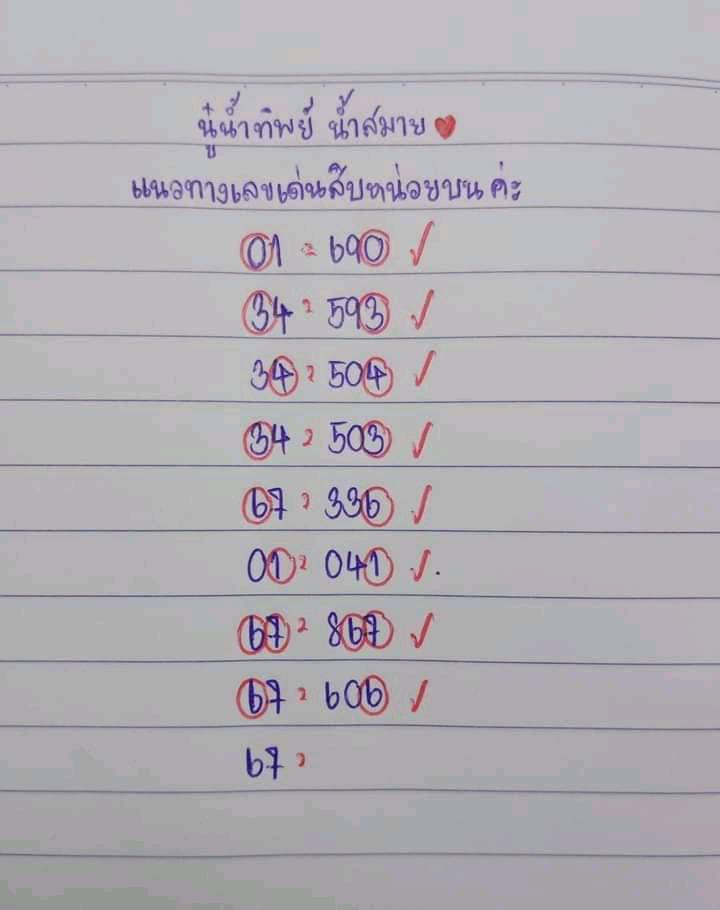 นู๋น้ำทิพย์ น้ำสมาย
แนวทางเลขเด่นสิบหน่อยบน ค่ะ
01 = 690 ✓
34 = 593 ✓
34 = 504 ✓
34 = 503 ✓
67 = 336 ✓
01 = 041 ✓.
67 = 867 ✓
67 = 606 ✓
67 =